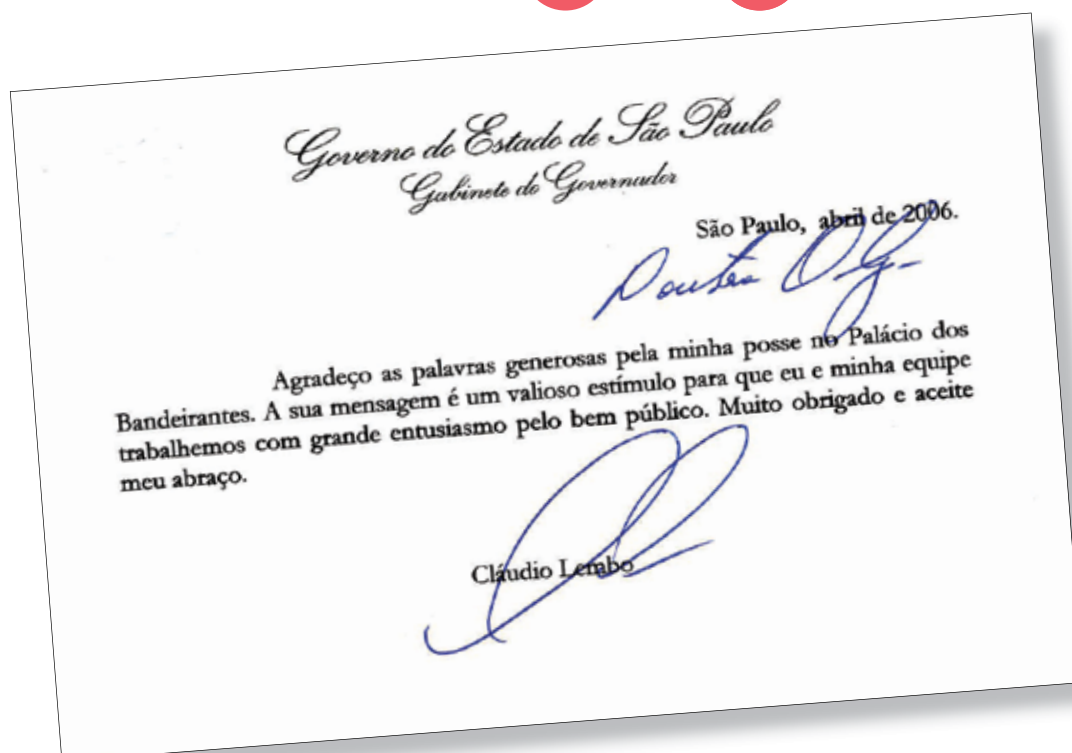 Governo do Estado de São Paulo
Gabinete do Governador
São Paulo, abril de 2006.
Agradeço as palavras generosas pela minha posse no Palácio dos
Bandeirantes. A sua mensagem é um valioso estímulo para que eu e minha equipe
trabalhemos com grande entusiasmo pelo bem público. Muito obrigado e aceite
meu abraço.
Cláudio Lembo